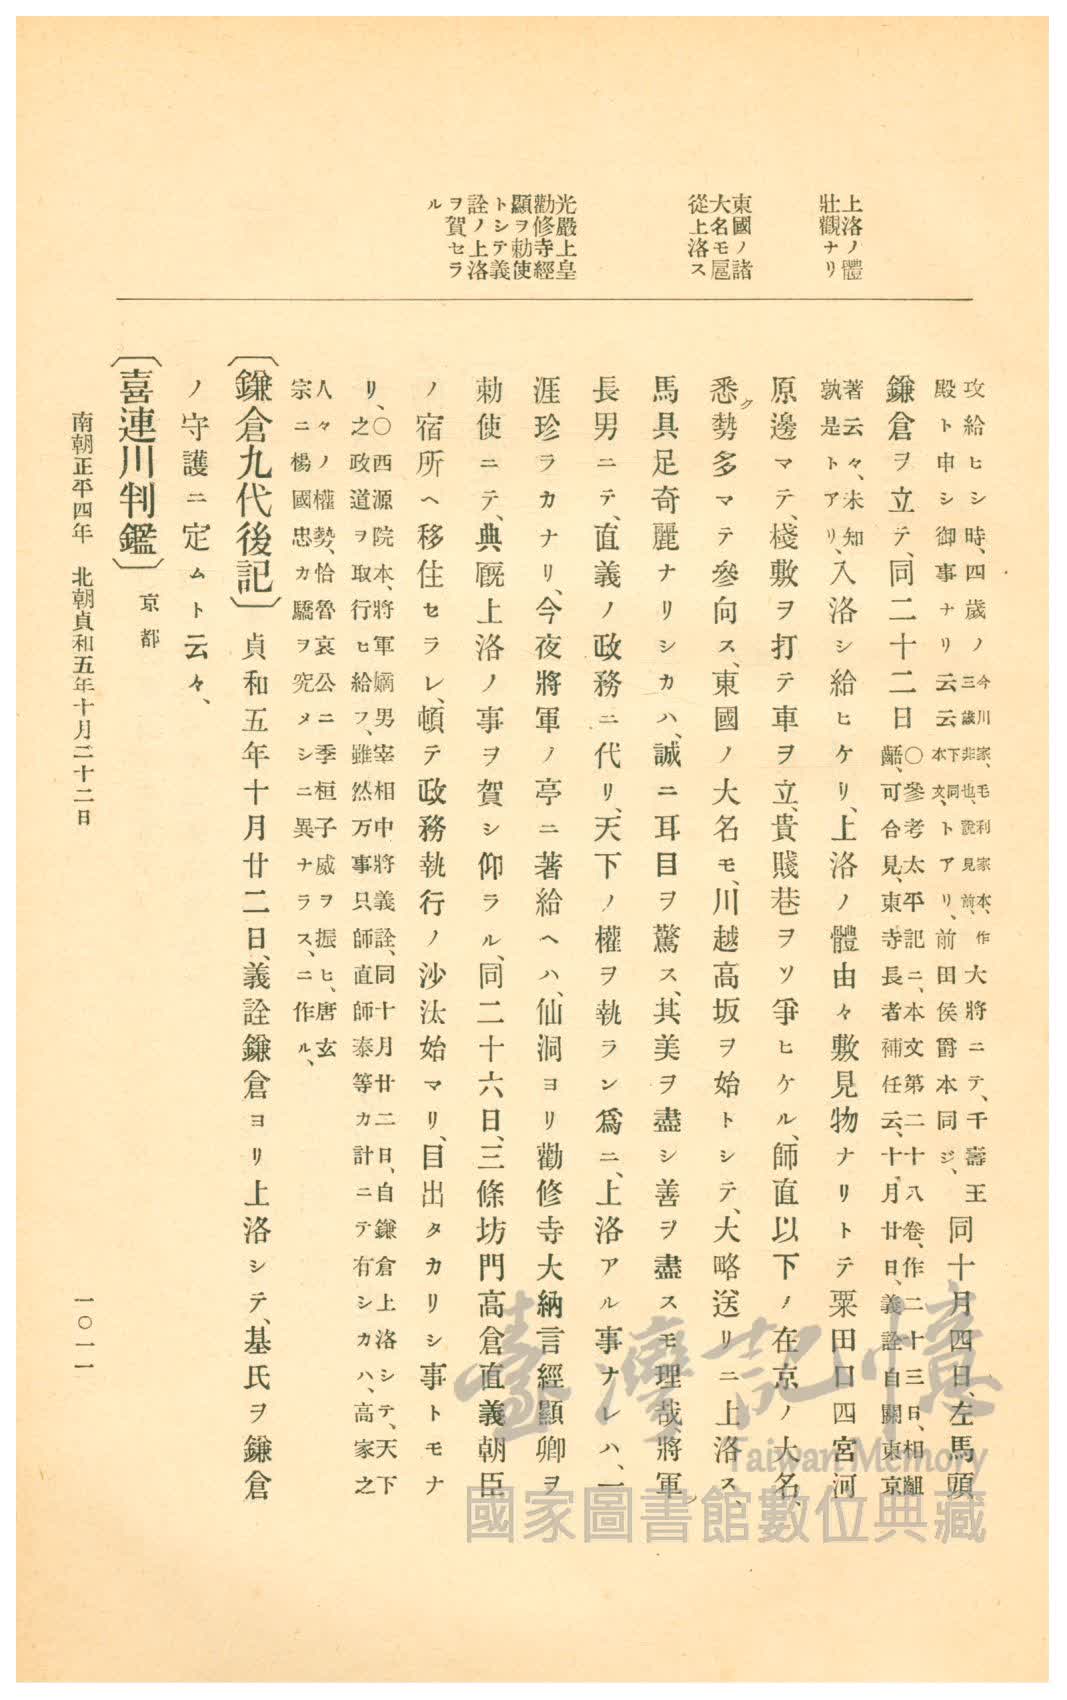 上洛ノ體
壯觀ナリ
東國ノ諸
大名モ扈
從上洛ス
光嚴上皇
勸修寺經
顯ヲ勅使
トシテ義
詮ノ上洛
ヲ賀セラ
ル
攻給ヒシ時、四歲ノ今川家、毛利家本、作三歲非也、說見前、下同、本文、大將ニテ、千壽王
殿ト申シ御事ナリ云云トアリ、前田侯爵本同ジ、同十月四日、左馬頭
鎌倉ヲ立テ、同二十二日〇參考太平記ニ、本文第二十八卷、作二十三日、相齟
齬、可合見、東寺長者補任云、十月廿日、義詮自關東京
著云々、未知
孰是トアリ、入洛シ給ヒケリ、上洛ノ體由々敷見物ナリトテ粟田口四宮河
原邊マテ、棧敷ヲ打テ車ヲ立、貴賤巷ヲソ爭ヒケル、師直以下ノ在京ノ大名、
悉ク勢多マテ參向ス、東國ノ大名モ、川越高坂ヲ始トシテ、大略送リニ上洛ス、
馬具足奇麗ナリシカハ、誠ニ耳目ヲ驚ス、其美ヲ盡シ善ヲ盡スモ理哉、將軍ノ
長男ニテ、直義ノ政務ニ代リ、天下ノ權ヲ執ラン爲ニ、上洛アル事ナレハ、一
涯珍ラカナリ、今夜將軍ノ亭ニ著給ヘハ、仙洞ヨリ勸修寺大納言經顯卿ヲ
勅使ニテ、典厩上洛ノ事ヲ賀シ仰ラル、同二十六日、三條坊門高倉直義朝臣
ノ宿所ヘ移住セラレ、頓テ政務執行ノ沙汰始マリ、目出タカリシ事トモナ
リ、〇西源院本、將軍嫡男宰相中將義詮、同十月廿二日、自鎌倉上洛シテ、天下
之政道ヲ取行ヒ給フ、雖然万事只師直師泰等カ計ニテ有シカハ、高家之
人々ノ權勢、恰魯哀公ニ季桓子威ヲ振ヒ、唐玄
宗ニ楊國忠カ驕ヲ究メシニ異ナラス、ニ作ル、
〔鎌倉九代後記〕貞和五年十月廿二日、義詮鎌倉ヨリ上洛シテ、基氏ヲ鎌倉
ノ守護ニ定ムト云々、
〔喜連川判鑑〕京都
南朝正平四年 北朝貞和五年十月二十二日
一〇一一
臺灣記憶
Taiwan Memory
國家圖書館數位典藏